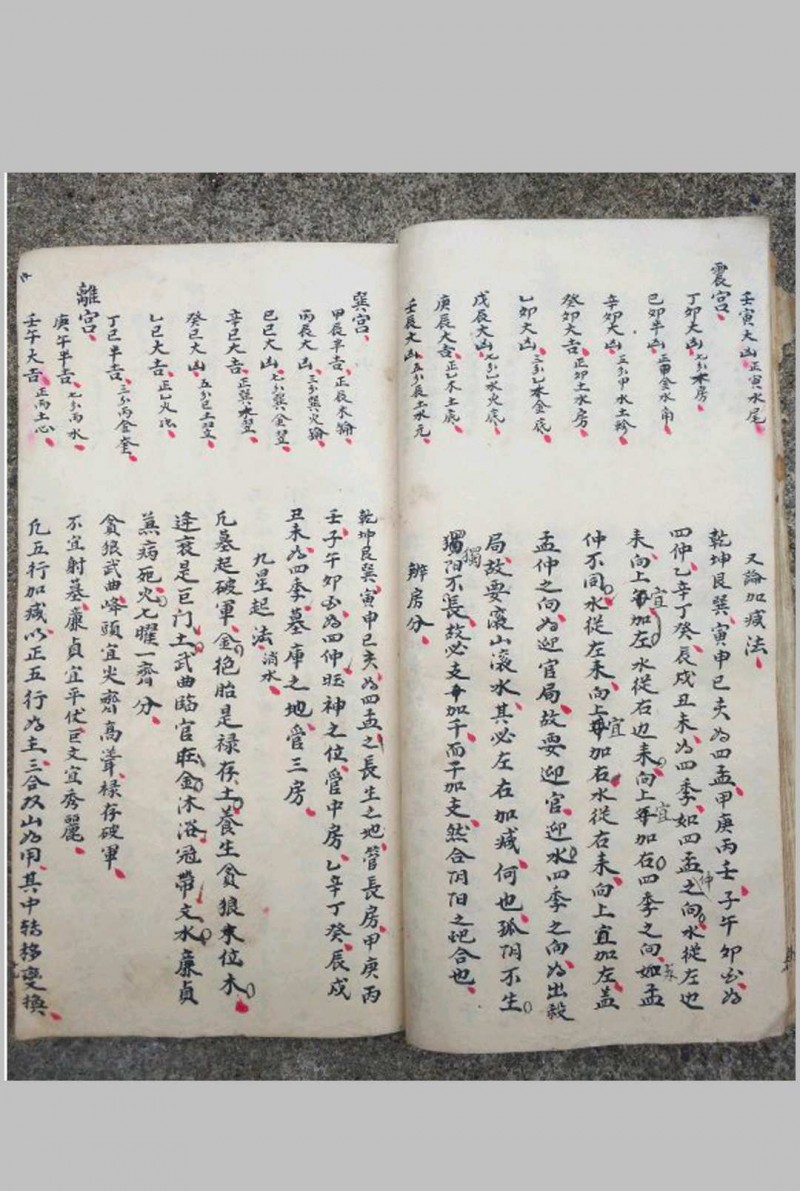 壬寅大凶正寅水尾
震宫
丁卯大凶七分木房
己卯半凶正甲金水角
辛卯大凶三分甲水土軫
癸卯大吉正卯土水房
乙卯大凶三分乙木金底
戊辰大凶七分乙水火底
庚辰大吉正乙木土底
壬辰大凶五分辰土水亢
又論加减法
乾坤艮巽寅申巳亥為四孟甲庚丙壬子午卯酉為
四仲乙辛丁癸辰戌丑未為四季如四孟仲之向水從左边
耒向上宜加左水從右边耒向上宜加右四季之向如孟
仲不同水從左耒向上宜加右水從右耒向上宜加左盖
孟仲之向為迎官局故要迎官迎水四季之向為出殺
局故要滚山滚水其必左右加减何也孤阴不生
獨阳不長故必支加干而干加支然合阴阳之𠮓合也
辨房分
巽宫
甲辰半吉正辰木
丙辰大凶三分巽火
巳巳大凶七分巽金翌
辛巳大吉正巽水翌
癸巳大凶五分巳土翌
乙巳大吉正乙火
丁巳半吉三分丙金奎
離宫
庚午半吉七分丙水
壬午大吉正丙土心
乾坤艮巽寅申巳亥為四孟之長生之地管長房甲庚丙
壬子午卯酉為四仲旺神之位管中房乙辛丁癸辰戌
丑未為四季墓庫之地管三房
九星起法消水
凡墓起破軍金绝胎是禄存土養生貪狼木位木
逢衰是巨门土武曲臨官旺金沐浴冠帶文水廉貞
兼病死火七曜一齊分
貪狼武曲峰頭宜尖齊高聳禄存破軍
不宜射墓廉貞宜平伏巨文宜秀麗
凡五行加减以正五行為主三合双山為用其中转移变換